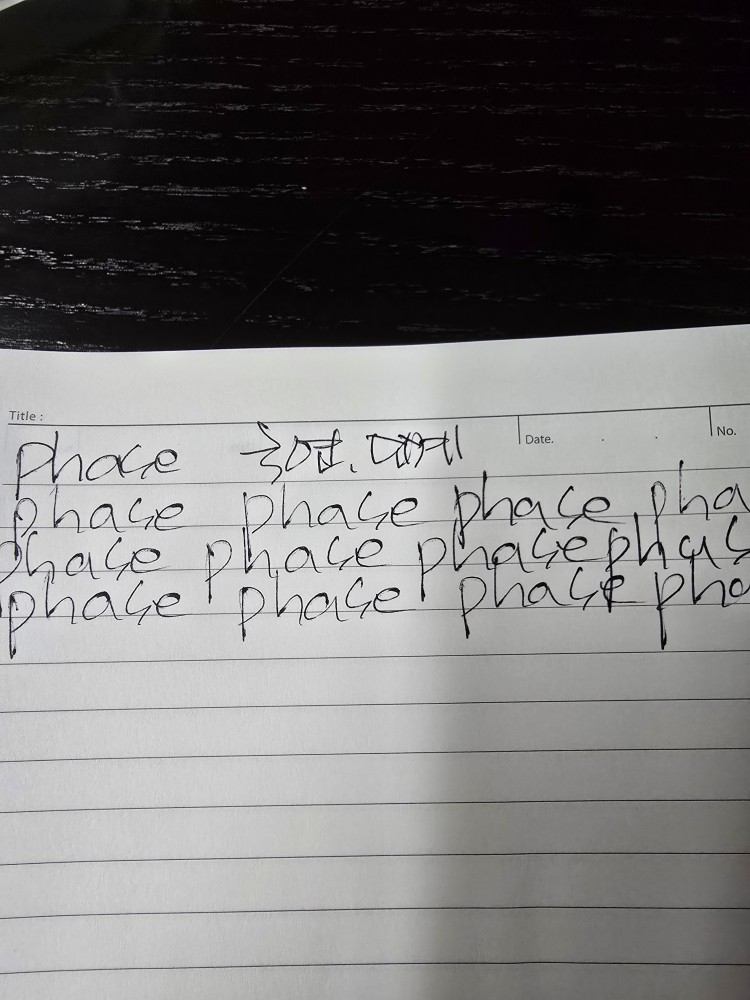 Title : Date. . . No.
phase
phase phase phase pha
phase phase phase phas
phase phase phase pha